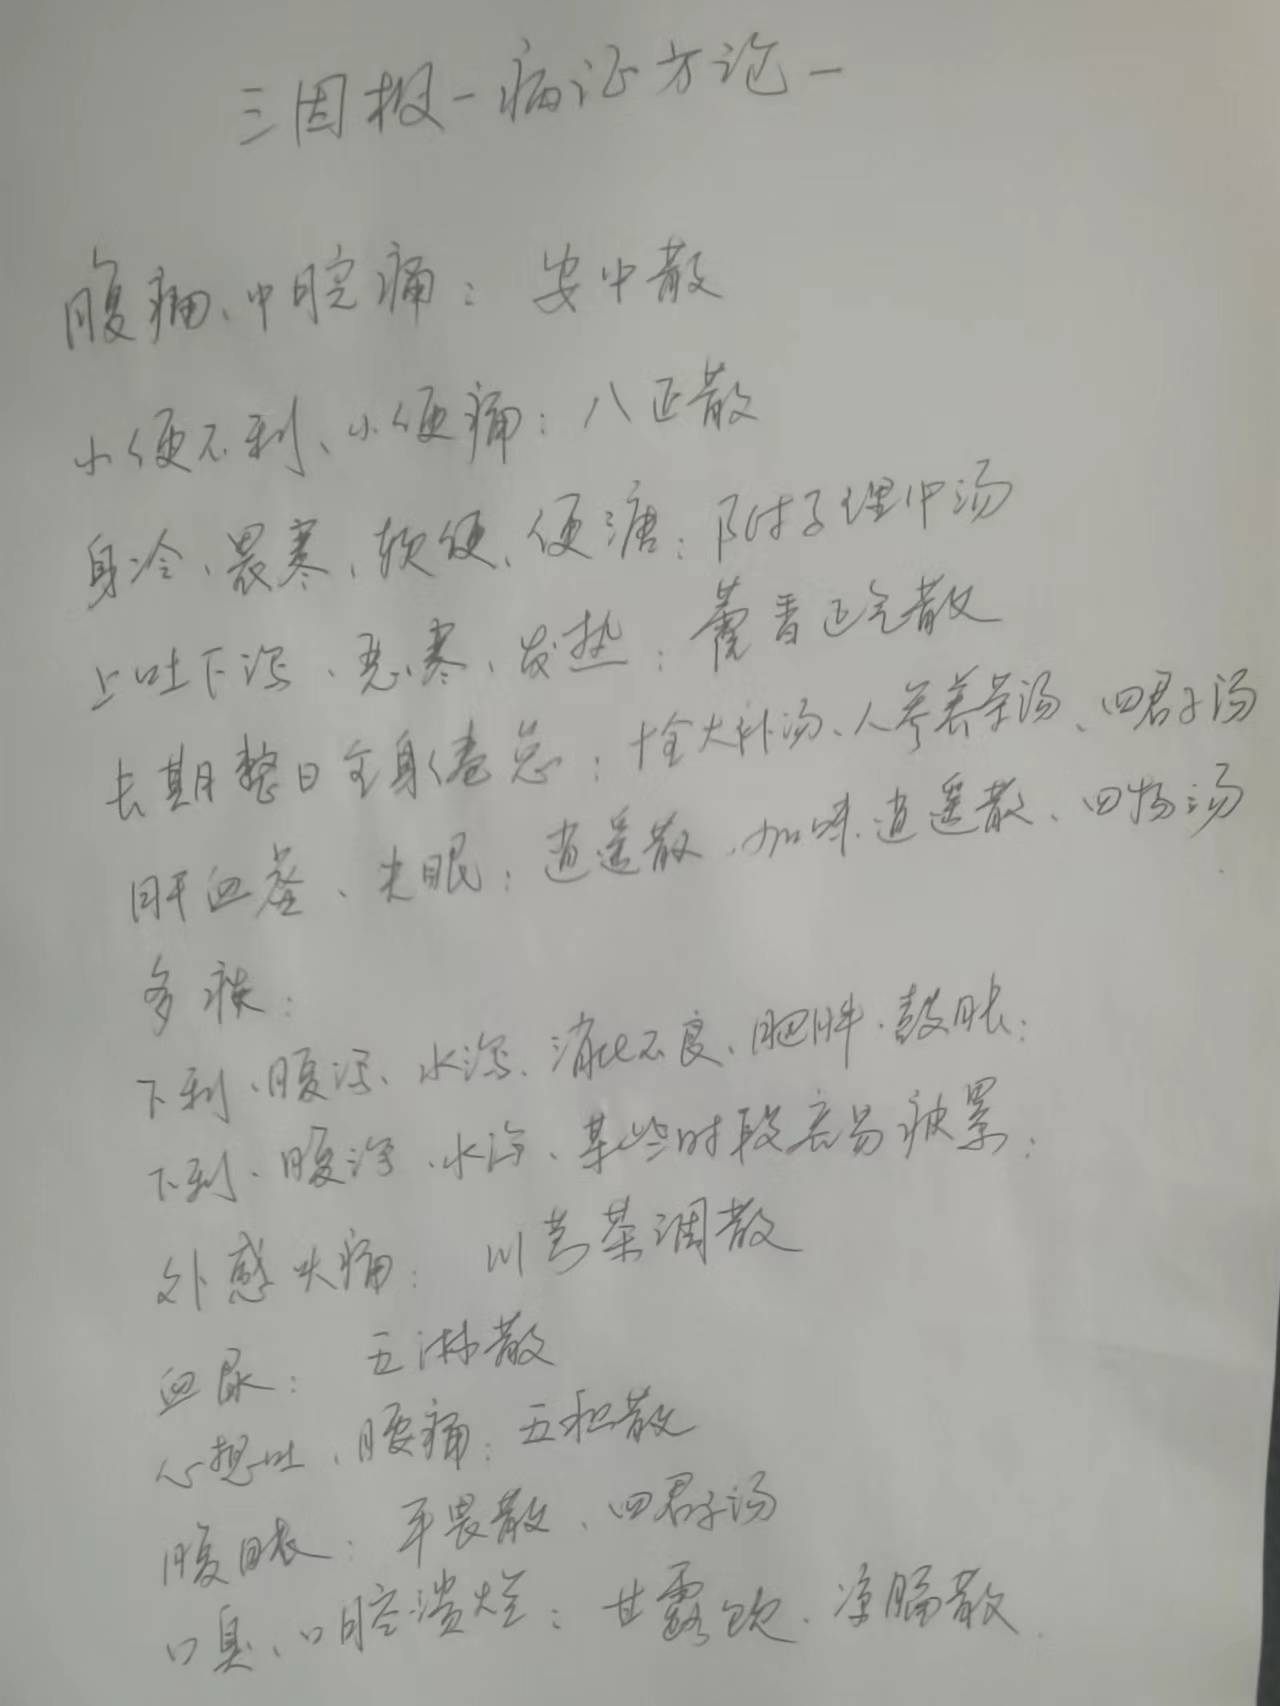 三因极一病证方论一
腹痛、中脘痛：安中散
小便不利、小便痛：八正散
身冷、畏寒、软便、便溏：附子理中汤
上吐下泻、恶寒、发热：藿香正气散
长期整日全身倦怠：十全大补汤、人参养荣汤、四君子汤
肝血虚、失眠：逍遥散、加味逍遥散、四物汤
多痰：
下利、腹泻、水泻、消化不良、肥胖、鼓胀：
下利、腹泻、水泻、某些时段容易疲累：
外感头痛：川芎茶调散
血尿：五淋散
心想吐、腰痛：五积散
腹胀：平畏散、四君子汤
口臭、口腔溃烂：甘露饮、凉膈散